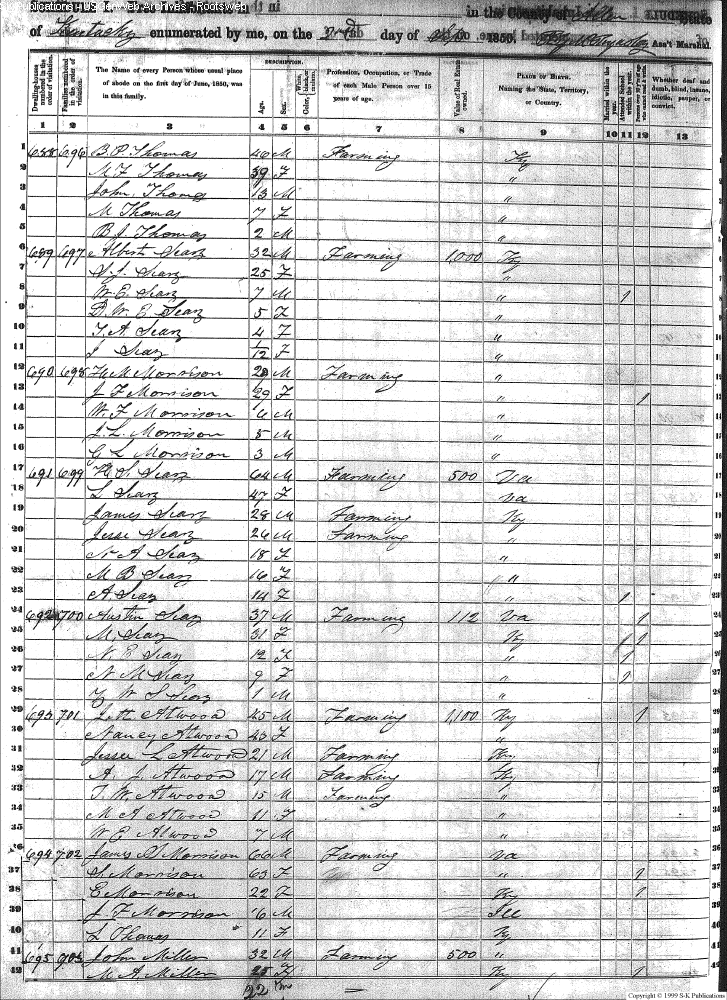 in the County of Allen State
of Kentucky enumerated by me, on the day of 1850. Ass't Marshal.
Dwelling-houses numbered in the order of visitation.
Families numbered in the order of visitation.
The Name of every Person whose usual place of abode on the first day of June, 1850, was in this family.
DESCRIPTION.
Age.
Sex.
Color, White, black, or mulatto.
Profession, Occupation, or Trade of each Male Person over 15 years of age.
Value of Real Estate owned.
PLACE OF BIRTH. Naming the State, Territory, or Country.
Married within the year.
Attended School within the year.
Whether deaf and dumb, blind, insane, idiotic, pauper, or convict.
1 2 3 4 5 6 7 8 9 10 11 12 13
1 688 696 B. P. Thomas 40 M Farming Ky
2 M. F. Thomas 39 F "
3 John Thomas 13 M "
4 M Thomas 7 F "
5 B J Thomas 2 M "
6 689 697 Albert Seay 32 M Farming 1,000 Ky
7 Seay 25 F "
8 W. E. Seay 7 M " 1
9 W. E. Seay 5 F "
10 T. A Seay 4 F "
11 Seay 1/12 F "
12 690 698 Morrison M Farming "
13 J F Morrison 29 F " 1
14 W. F Morrison 6 M "
15 J. L. Morrison 5 M "
16 G L Morrison 3 M "
17 691 699 S. Seay 64 M Farming 500 Va
18 L Seay 47 F Va
19 James Seay 28 M Farming Ky
20 Jesse Seay 26 M Farming "
21 N A Seay 18 F "
22 M B Seay 16 F "
23 A Seay 14 F " 1
24 692 700 Austin Seay 37 M Farming 112 Va 1
25 M. Seay 31 F Ky 1 1
26 N. E Seay 12 F " 1
27 N M Seay 9 F " 1
28 W S Seay 1 M "
29 693 701 Atwood 45 M Farming 1,100 Ky 1
30 Nancy Atwood 43 F "
31 Jesse L Atwood 21 M Farming Ky
32 A. L. Atwood 17 M Farming Ky
33 T. W. Atwood 15 M Farming "
34 M A Atwood 11 F "
35 W. E Atwood 7 M "
36 694 702 James Morrison 66 M Farming Va
37 Morrison 63 F " 1
38 E Morrison 22 F Ky 1
39 J. F Morrison 6 M Ill
40 L Thomas 11 F Ky
41 695 703 John Miller 32 M Farming 500 "
42 M. A. Miller 25 F Ky 1
22
Copyright © 1999 S-K Publications